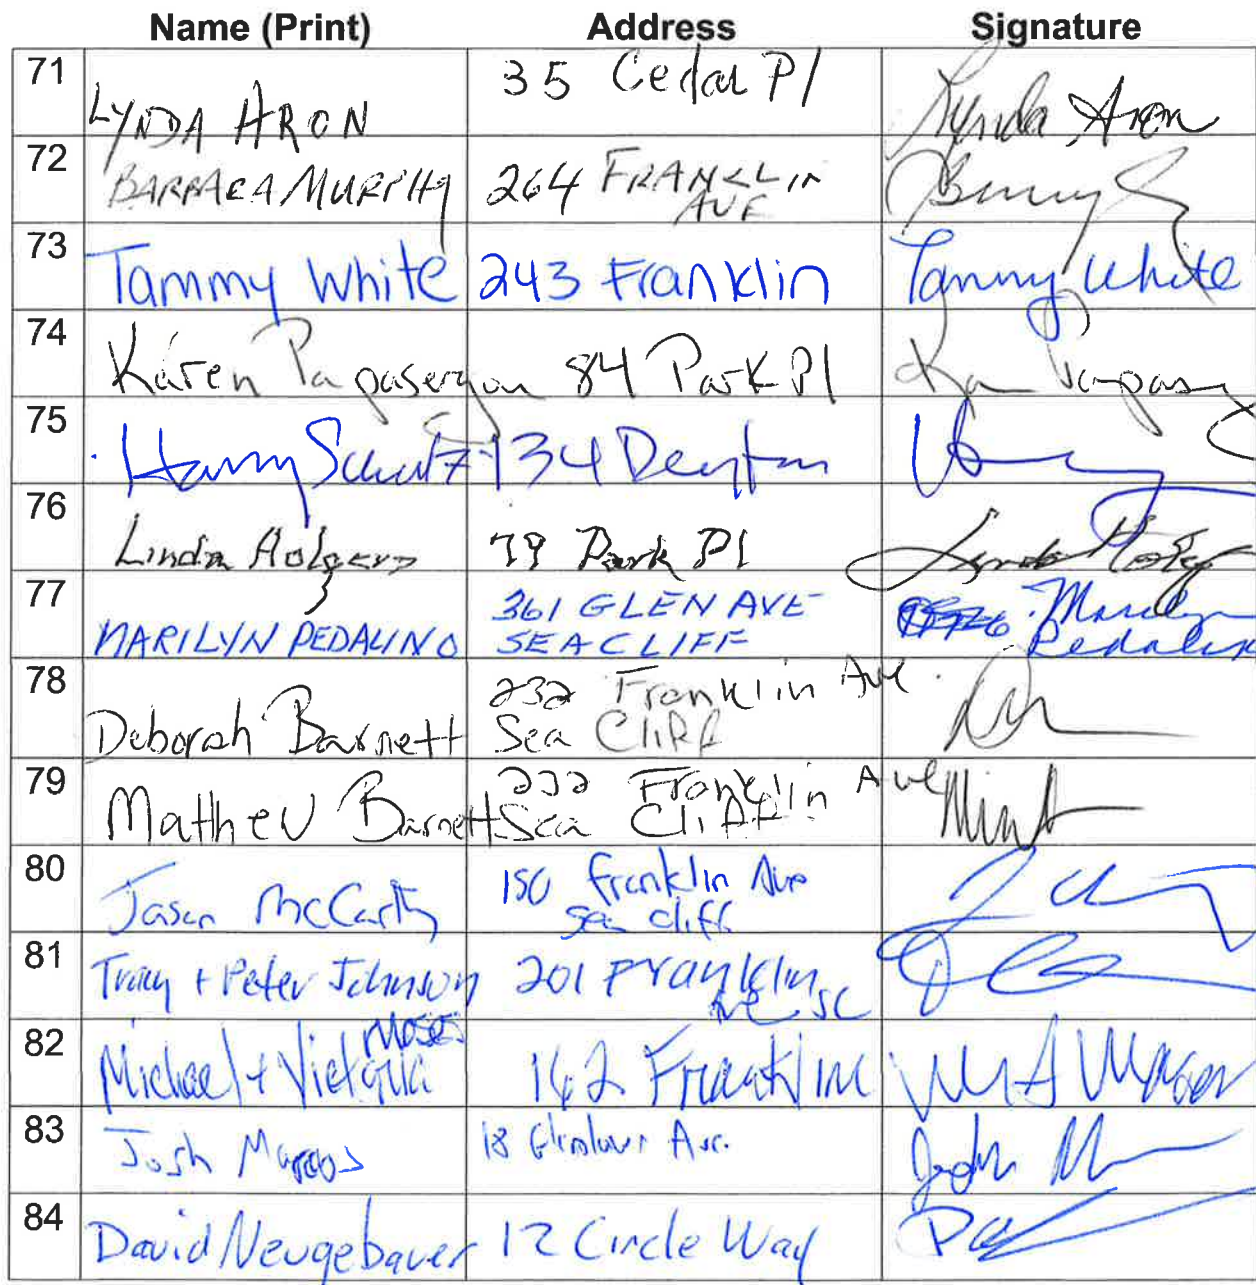 Name (Print) Address Signature
71 LYNDA ARON 35 Cedar Pl Lynda Aron
72 BARBARA MURPHY 264 FRANKLIN
AVE
73 Tammy White 243 Franklin Tammy White
74 Karen Papasergiou 84 Park Pl
75 Harry Schutz 134 Dayton
76 Linda Holgers 79 Park Pl Linda
77 MARILYN PEDALINO 361 GLEN AVE Marilyn
SEA CLIFF Pedalino
78 Deborah Barnett 232 Franklin Ave.
Sea Cliff
79 Matthew Barnett 232 Franklin Ave
Sea Cliff
80 Jason McCarthy 150 Franklin Ave
Sea Cliff
81 Tracy + Peter Johnson 201 Franklin
Ave SC
82 Michael + Victoria Moses 162 Franklin
83 Josh 18 Ave. Josh
84 David Neugebauer 12 Circle Way